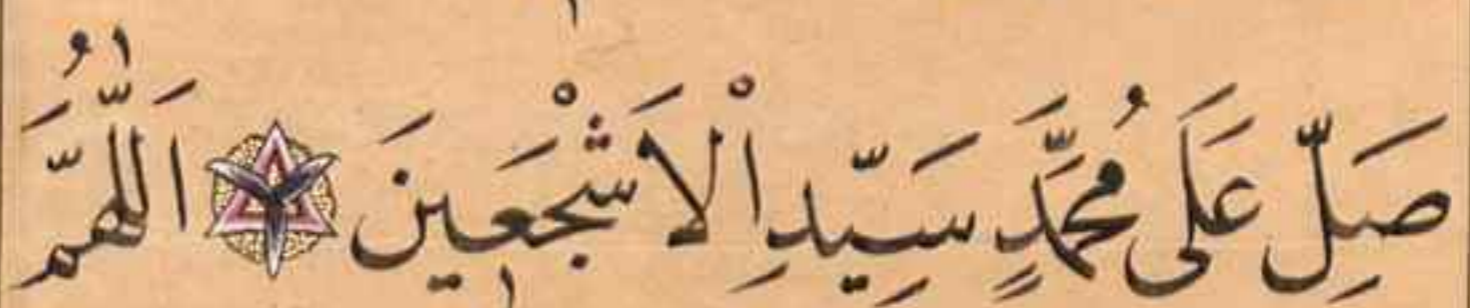 صَلِّ عَلَى مُحَمَّدٍ سَيِّدِ اْلاَشْجَعِينَ اَللّٰهُمَّ